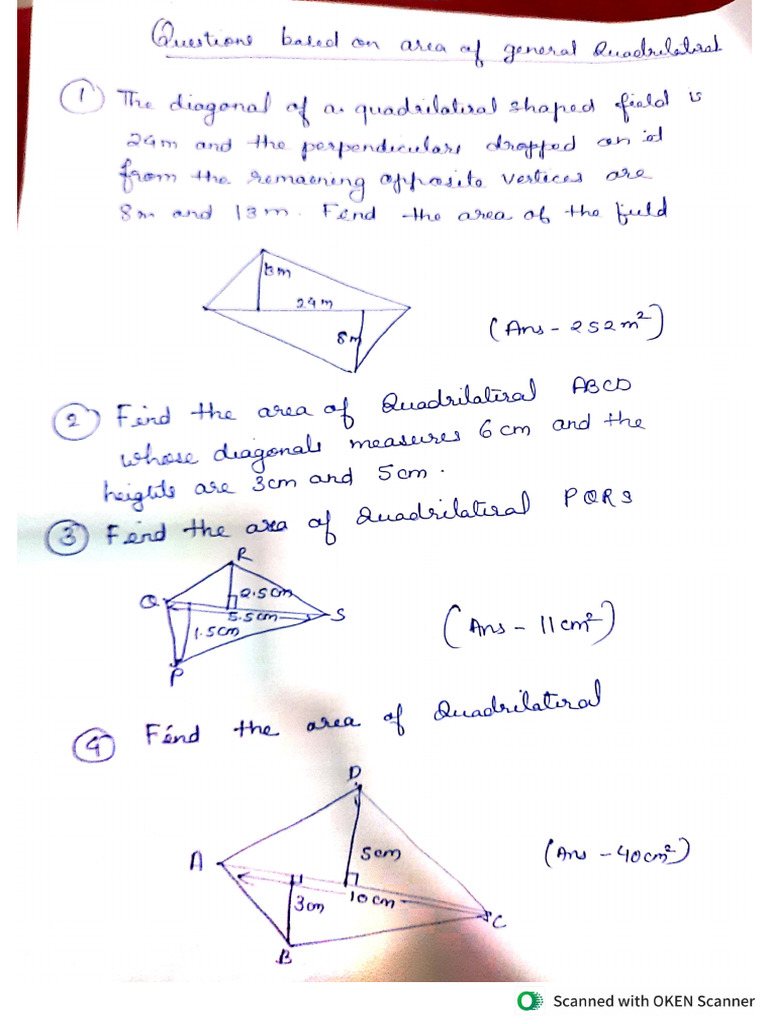 Questions based on area of general Quadrilateral
① The diagonal of a quadrilateral shaped field is
24m and the perpendiculars dropped on it
from the remaening opposite vertices are
8m and 13m. Find the area of the field
13m
24m
8m
(Ans - 252m²)
② Find the area of Quadrilateral ABCD
whose diagonals measures 6cm and the
heights are 3cm and 5cm.
③ Find the area of Quadrilateral PQRS
R
Q
2.5cm
S
5.5cm
1.5cm
P
(Ans - 11cm²)
④ Find the area of Quadrilateral
D
A
5cm
10cm
3cm
C
B
(Ans - 40cm²)
Scanned with OKEN Scanner